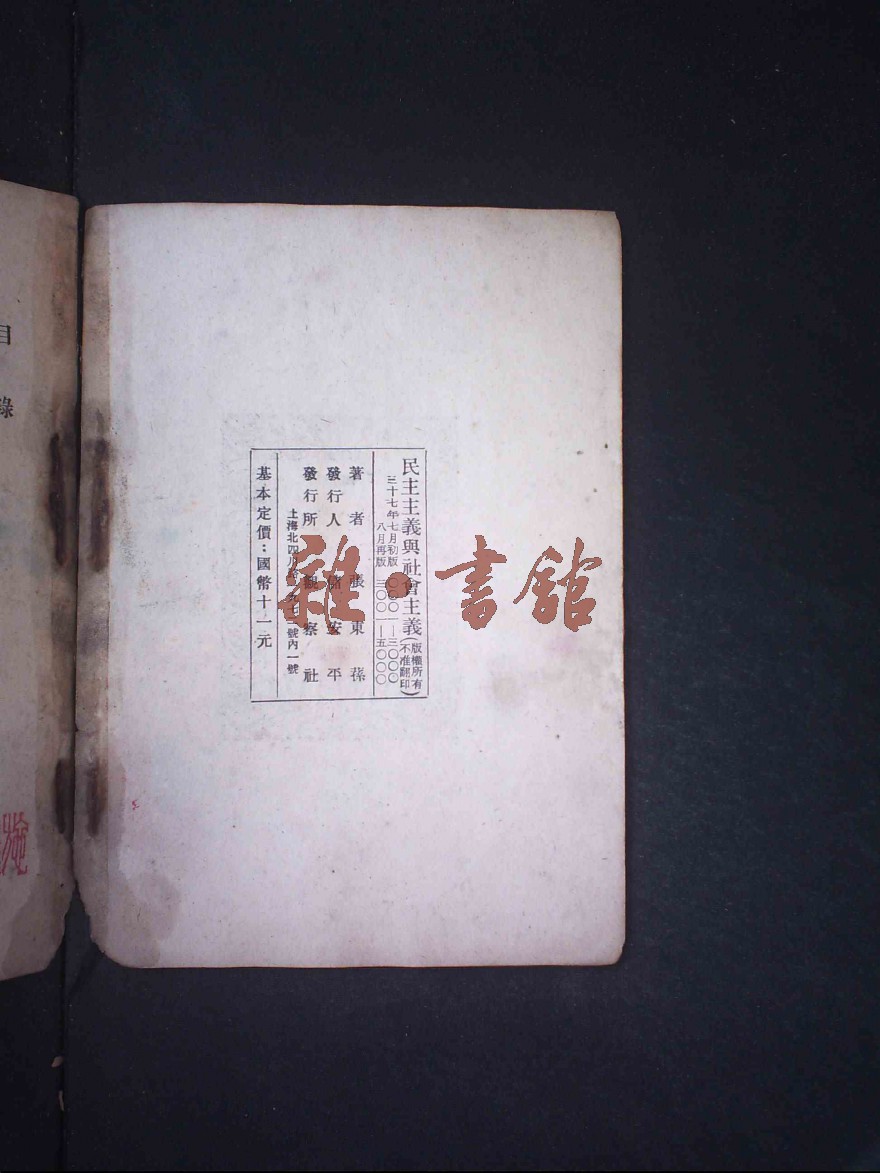 民主主義與社會主義(版權所有 不准翻印)
三十七年七月初版 〇〇〇一—三〇〇〇
八月再版 三〇〇一—五〇〇〇
著者 張東蓀
發行人 儲安平
發行所 觀察社
上海北四川路 號內一號
基本定價：國幣十一元
雜·書館
目錄